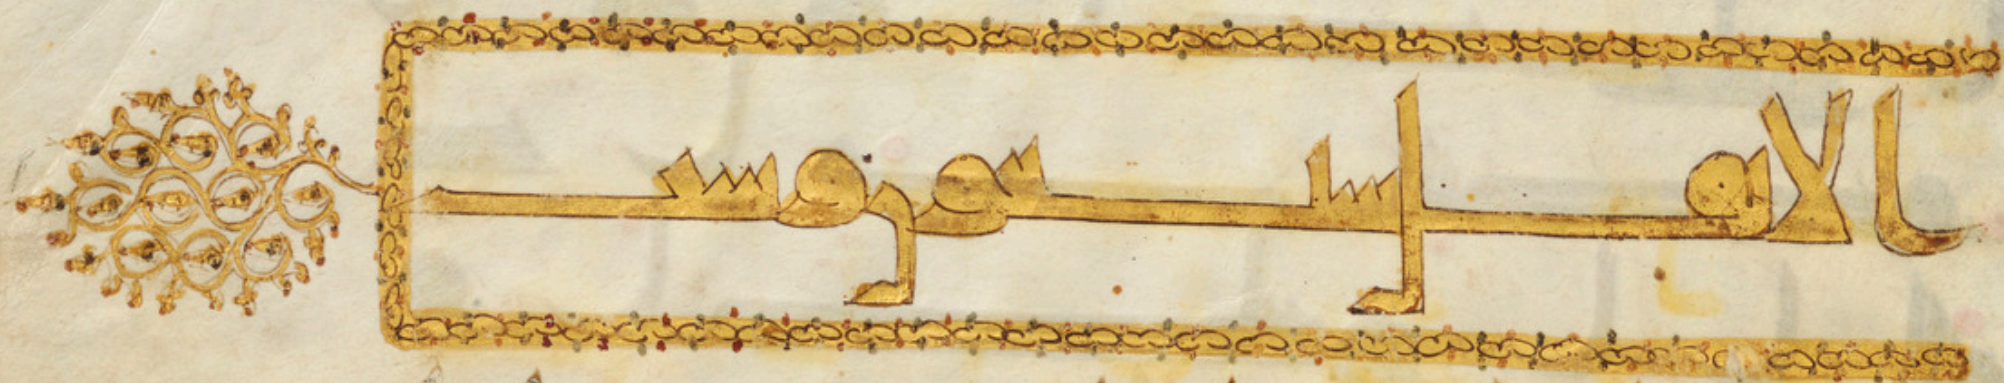 الانفل سبعون وست